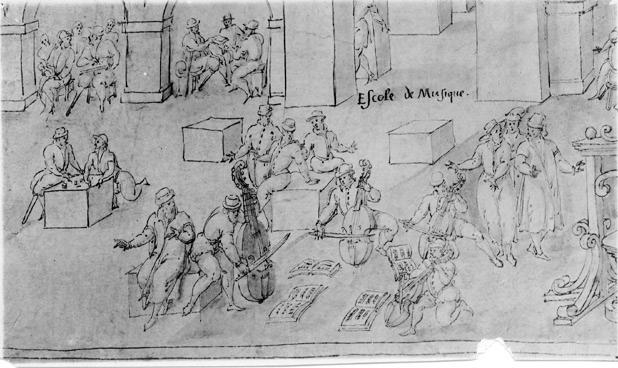 Escole de Musique.